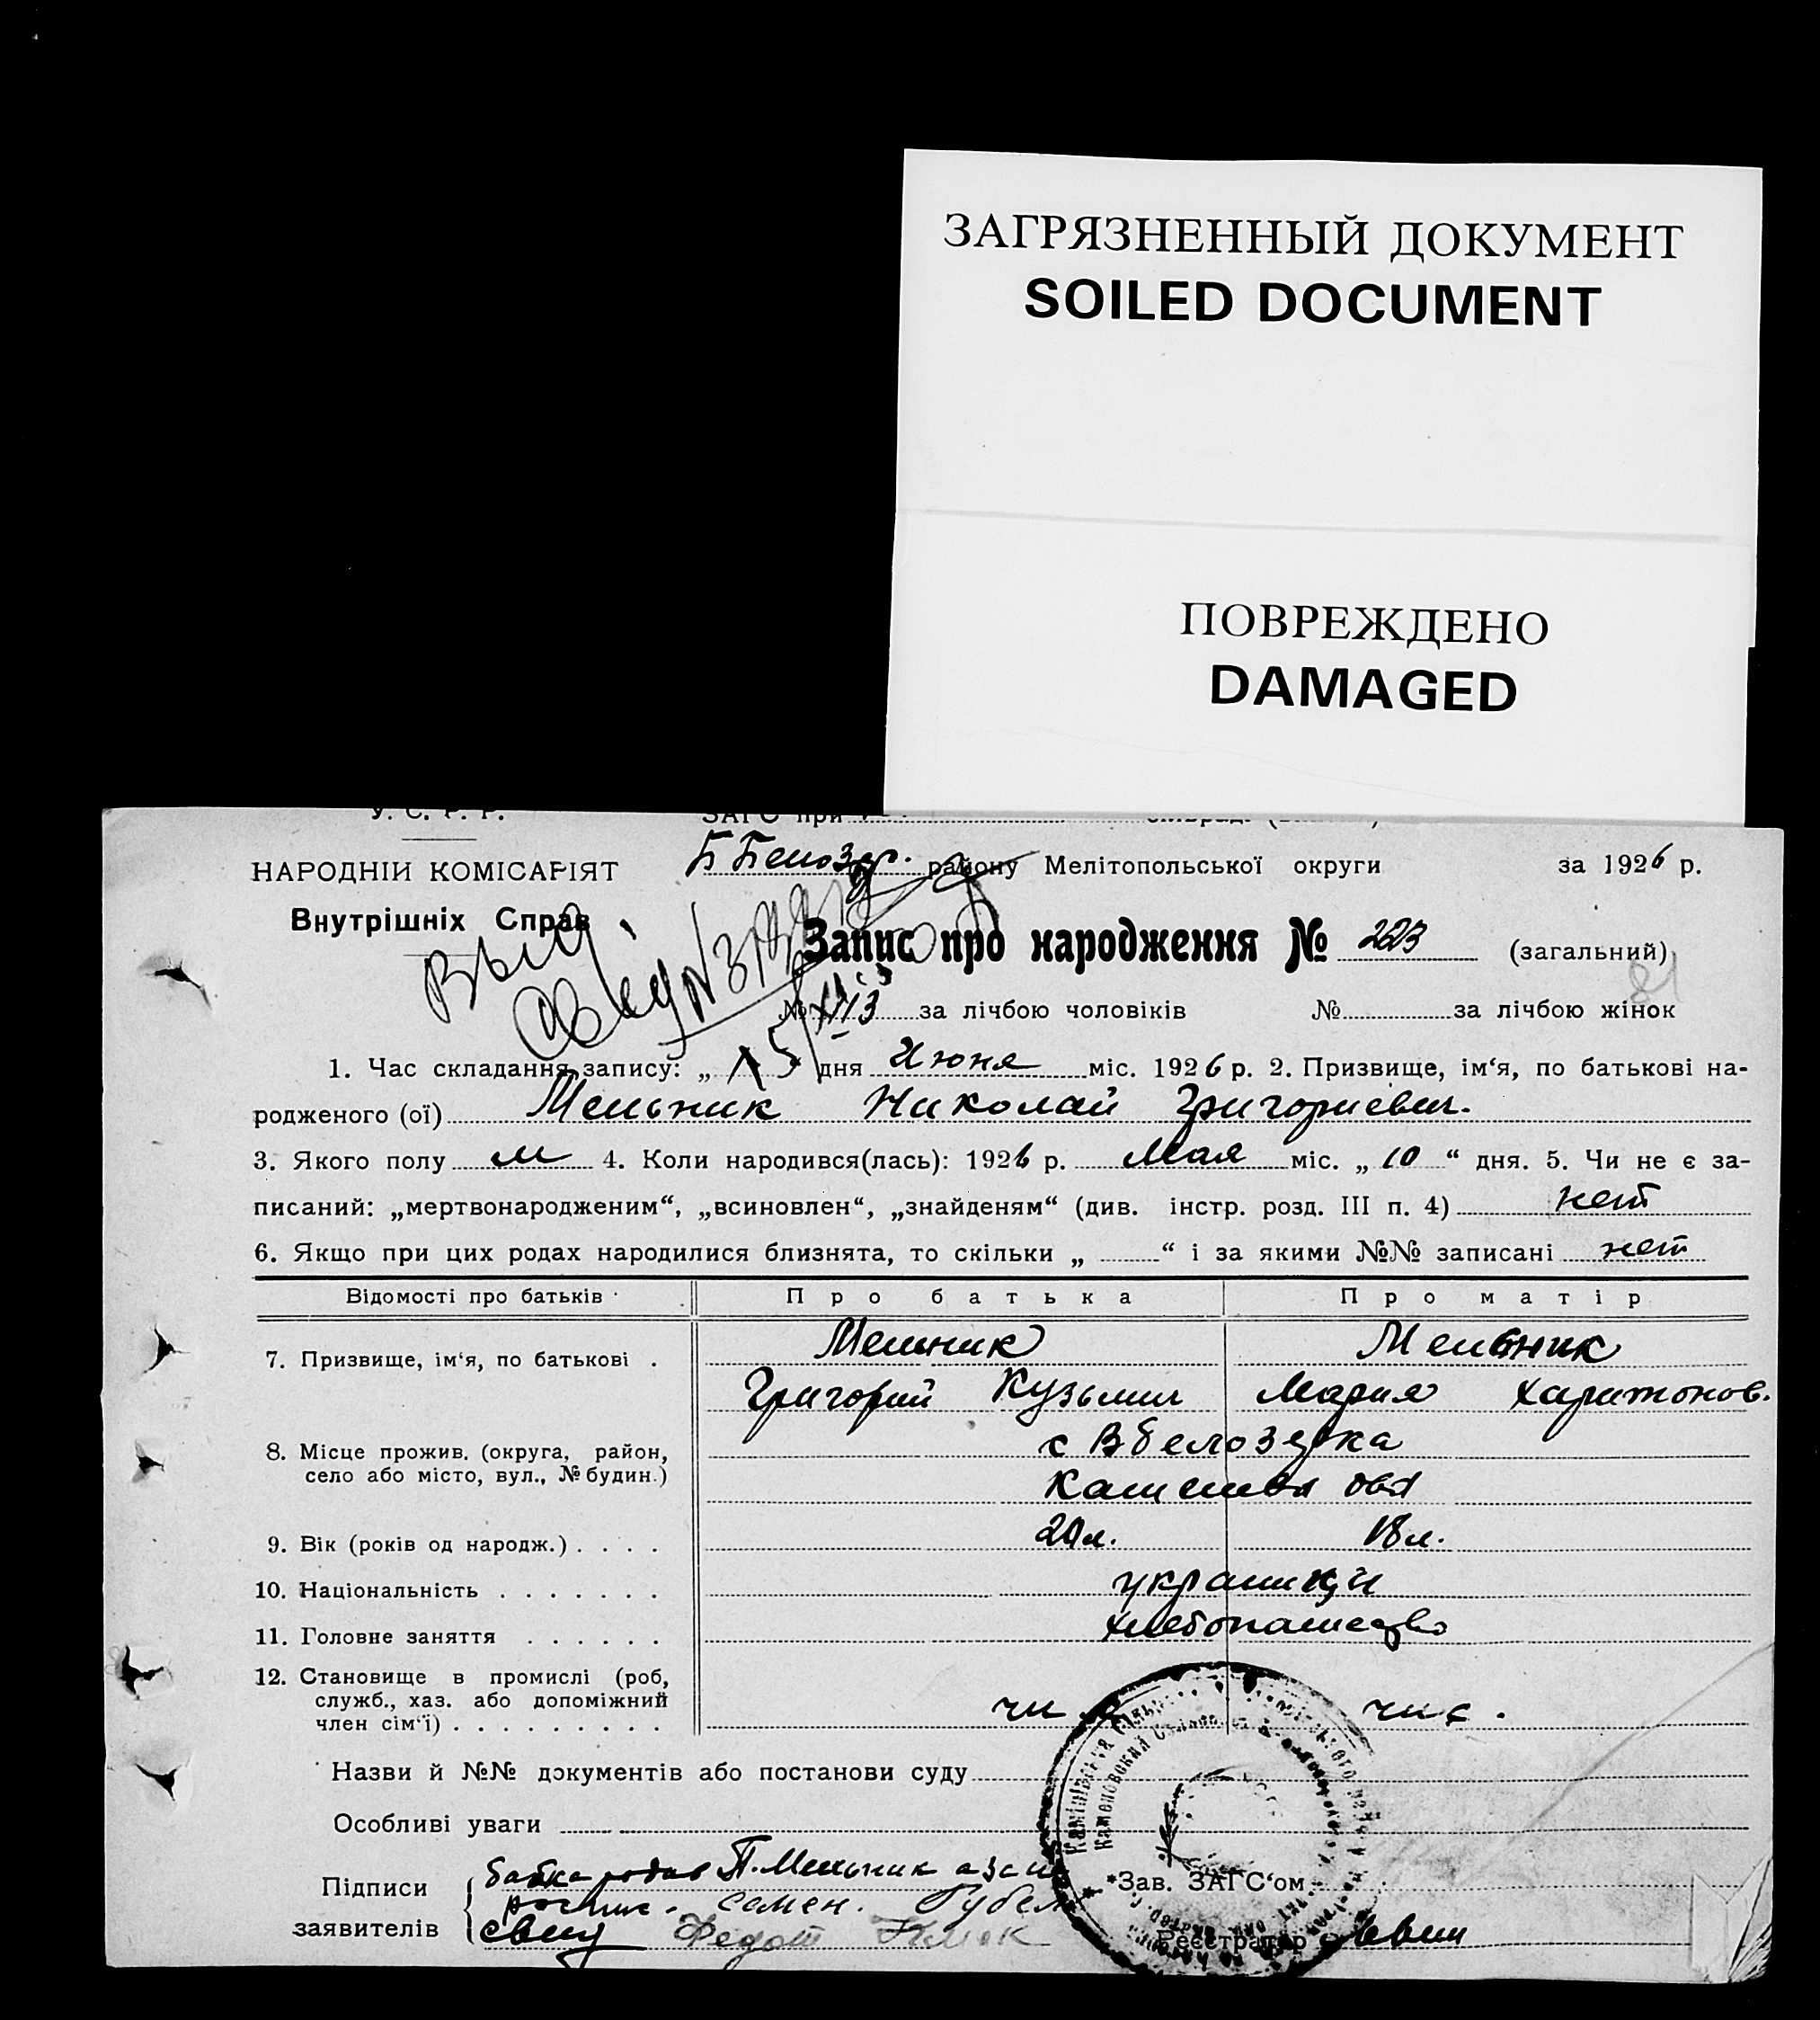 ЗАГРЯЗНЕННЫЙ ДОКУМЕНТ
SOILED DOCUMENT
ПОВРЕЖДЕНО
DAMAGED
У. С. Р. Р.
ЗАГС при
НАРОДНІЙ КОМІСАРІЯТ
Внутрішніх Справ
Б Белозер. району Мелітопольської округи за 1926 р.
Запис про народження № 223 (загальний)
81
№ 113 за лічбою чоловіків № за лічбою жінок
1. Час складання запису: „ 15 дня Июня міс. 1926 р. 2. Призвище, ім‘я, по батькові на-
родженого (ої) Мельник Николай Григориевич.
3. Якого полу м 4. Коли народився(лась): 1926 р. Мая міс. „ 10 “ дня. 5. Чи не є за-
писаний: „мертвонародженим“, „всиновлен“, „знайденям“ (див. інстр. розд. III п. 4) нет
6. Якщо при цих родах народилися близнята, то скільки „ “ і за якими №№ записані нет
Відомості про батьків Про батька Про матір
7. Призвище, ім‘я, по батькові . Мельник Мельник
Григорий Кузьмич Мария Харитонов.
8. Місце прожив. (округа, район,
село або місто, вул., № будин.)
с В белозерка
9. Вік (років од народж.) . . . . 20 л. 18 л.
10. Національність . . . . . . . украинцы
11. Головне заняття . . . . . . хлебопашество
12. Становище в промислі (роб,
служб., хаз. або допоміжний
член сім‘ї) . . . . . . . . .
Назви й №№ документів або постанови суду
Особливі уваги
Підписи
заявителів
П. Мельник
семен.
Федот
Зав. ЗАГС‘ом
Реєстратор